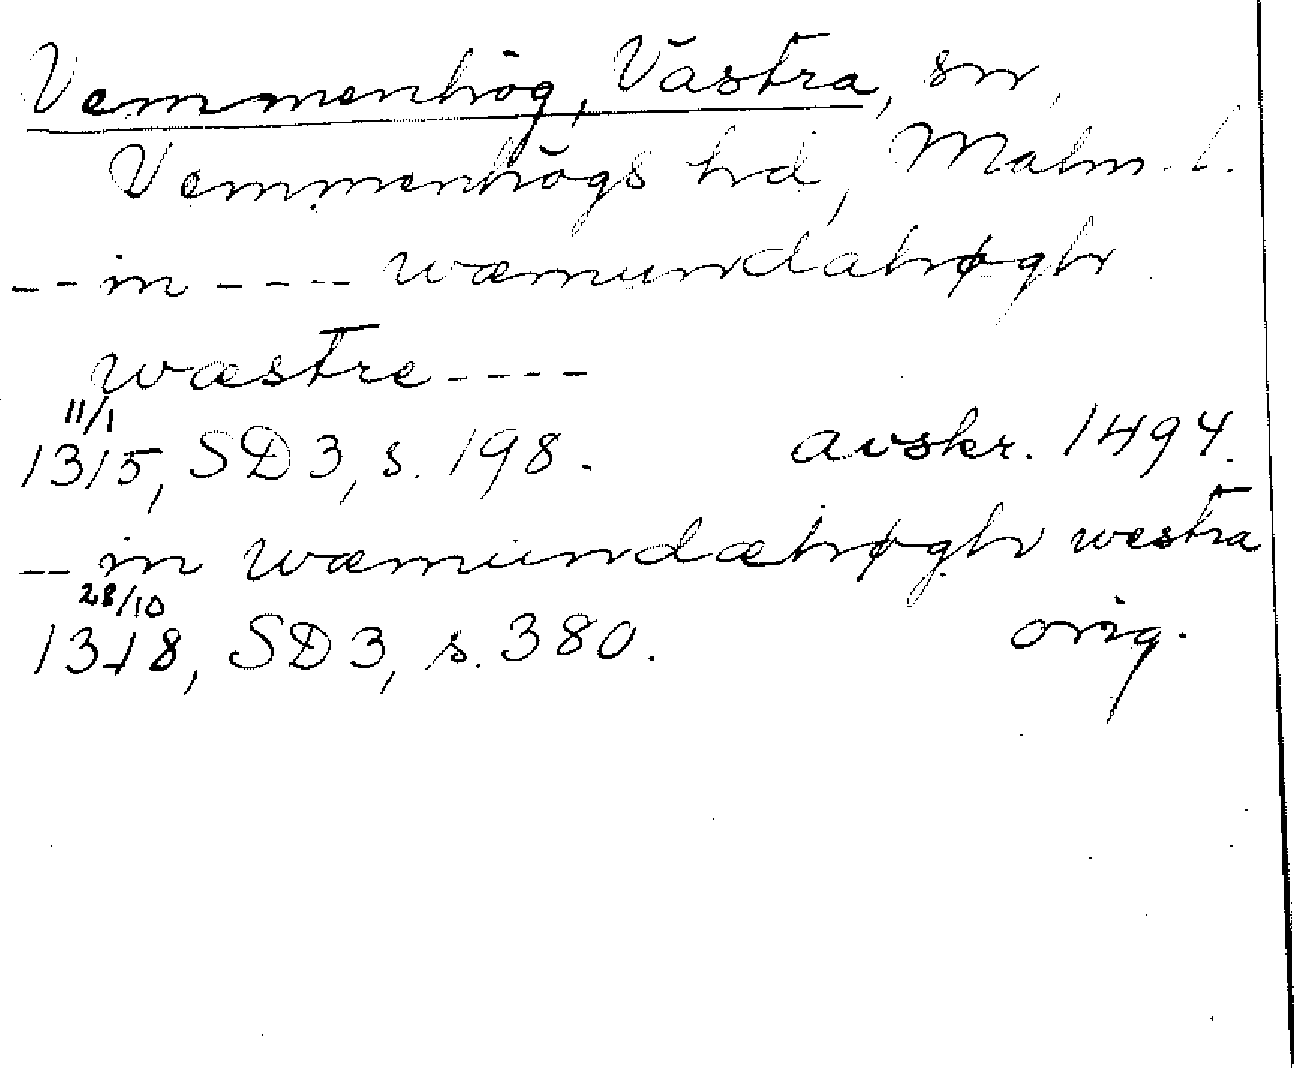 Vemmenhög, Västra, sn,
Vemmenhögs hd, Malm. l.
-- in ---- wæmundahøgh
wæstre ----
11/1
1315, SD 3, s. 198. avskr. 1494.
-- in wæmundæhøgh westra
28/10
1318, SD 3, s. 380. orig.